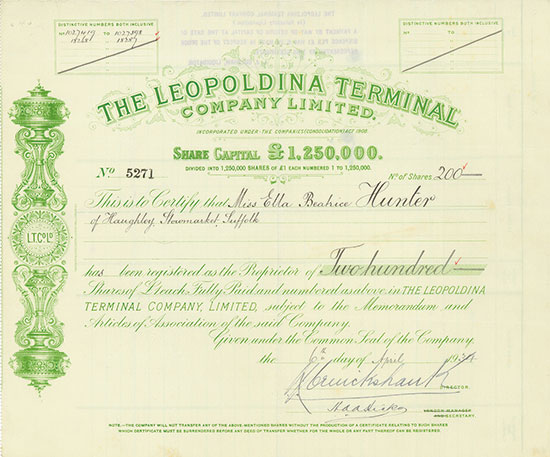 DISTINCTIVE NUMBERS BOTH INCLUSIVE
Nº TO
DISTINCTIVE NUMBERS BOTH INCLUSIVE
Nº TO
THE LEOPOLDINA TERMINAL
COMPANY LIMITED.
INCORPORATED UNDER THE COMPANIES (CONSOLIDATION) ACT 1908.
SHARE CAPITAL £1,250,000.
DIVIDED INTO 1,250,000 SHARES OF £1 EACH NUMBERED 1 TO 1,250,000.
Nº 5271
Nº of Shares 200
This is to Certify that Miss Ella Beatrice Hunter
of Haughley, Stowmarket, Suffolk
L.T.Cº Lº
has been registered as the Proprietor of Two hundred
Shares of £1 each, Fully Paid and numbered as above in THE LEOPOLDINA
TERMINAL COMPANY, LIMITED, subject to the Memorandum and
Articles of Association of the said Company.
Given under the Common Seal of the Company,
the 6th day of April
DIRECTOR.
SECRETARY.
NOTE.—THE COMPANY WILL NOT TRANSFER ANY OF THE ABOVE-MENTIONED SHARES WITHOUT THE PRODUCTION OF A CERTIFICATE RELATING TO SUCH SHARES
WHICH CERTIFICATE MUST BE SURRENDERED BEFORE ANY DEED OF TRANSFER WHETHER FOR THE WHOLE OR ANY PART THEREOF CAN BE REGISTERED.